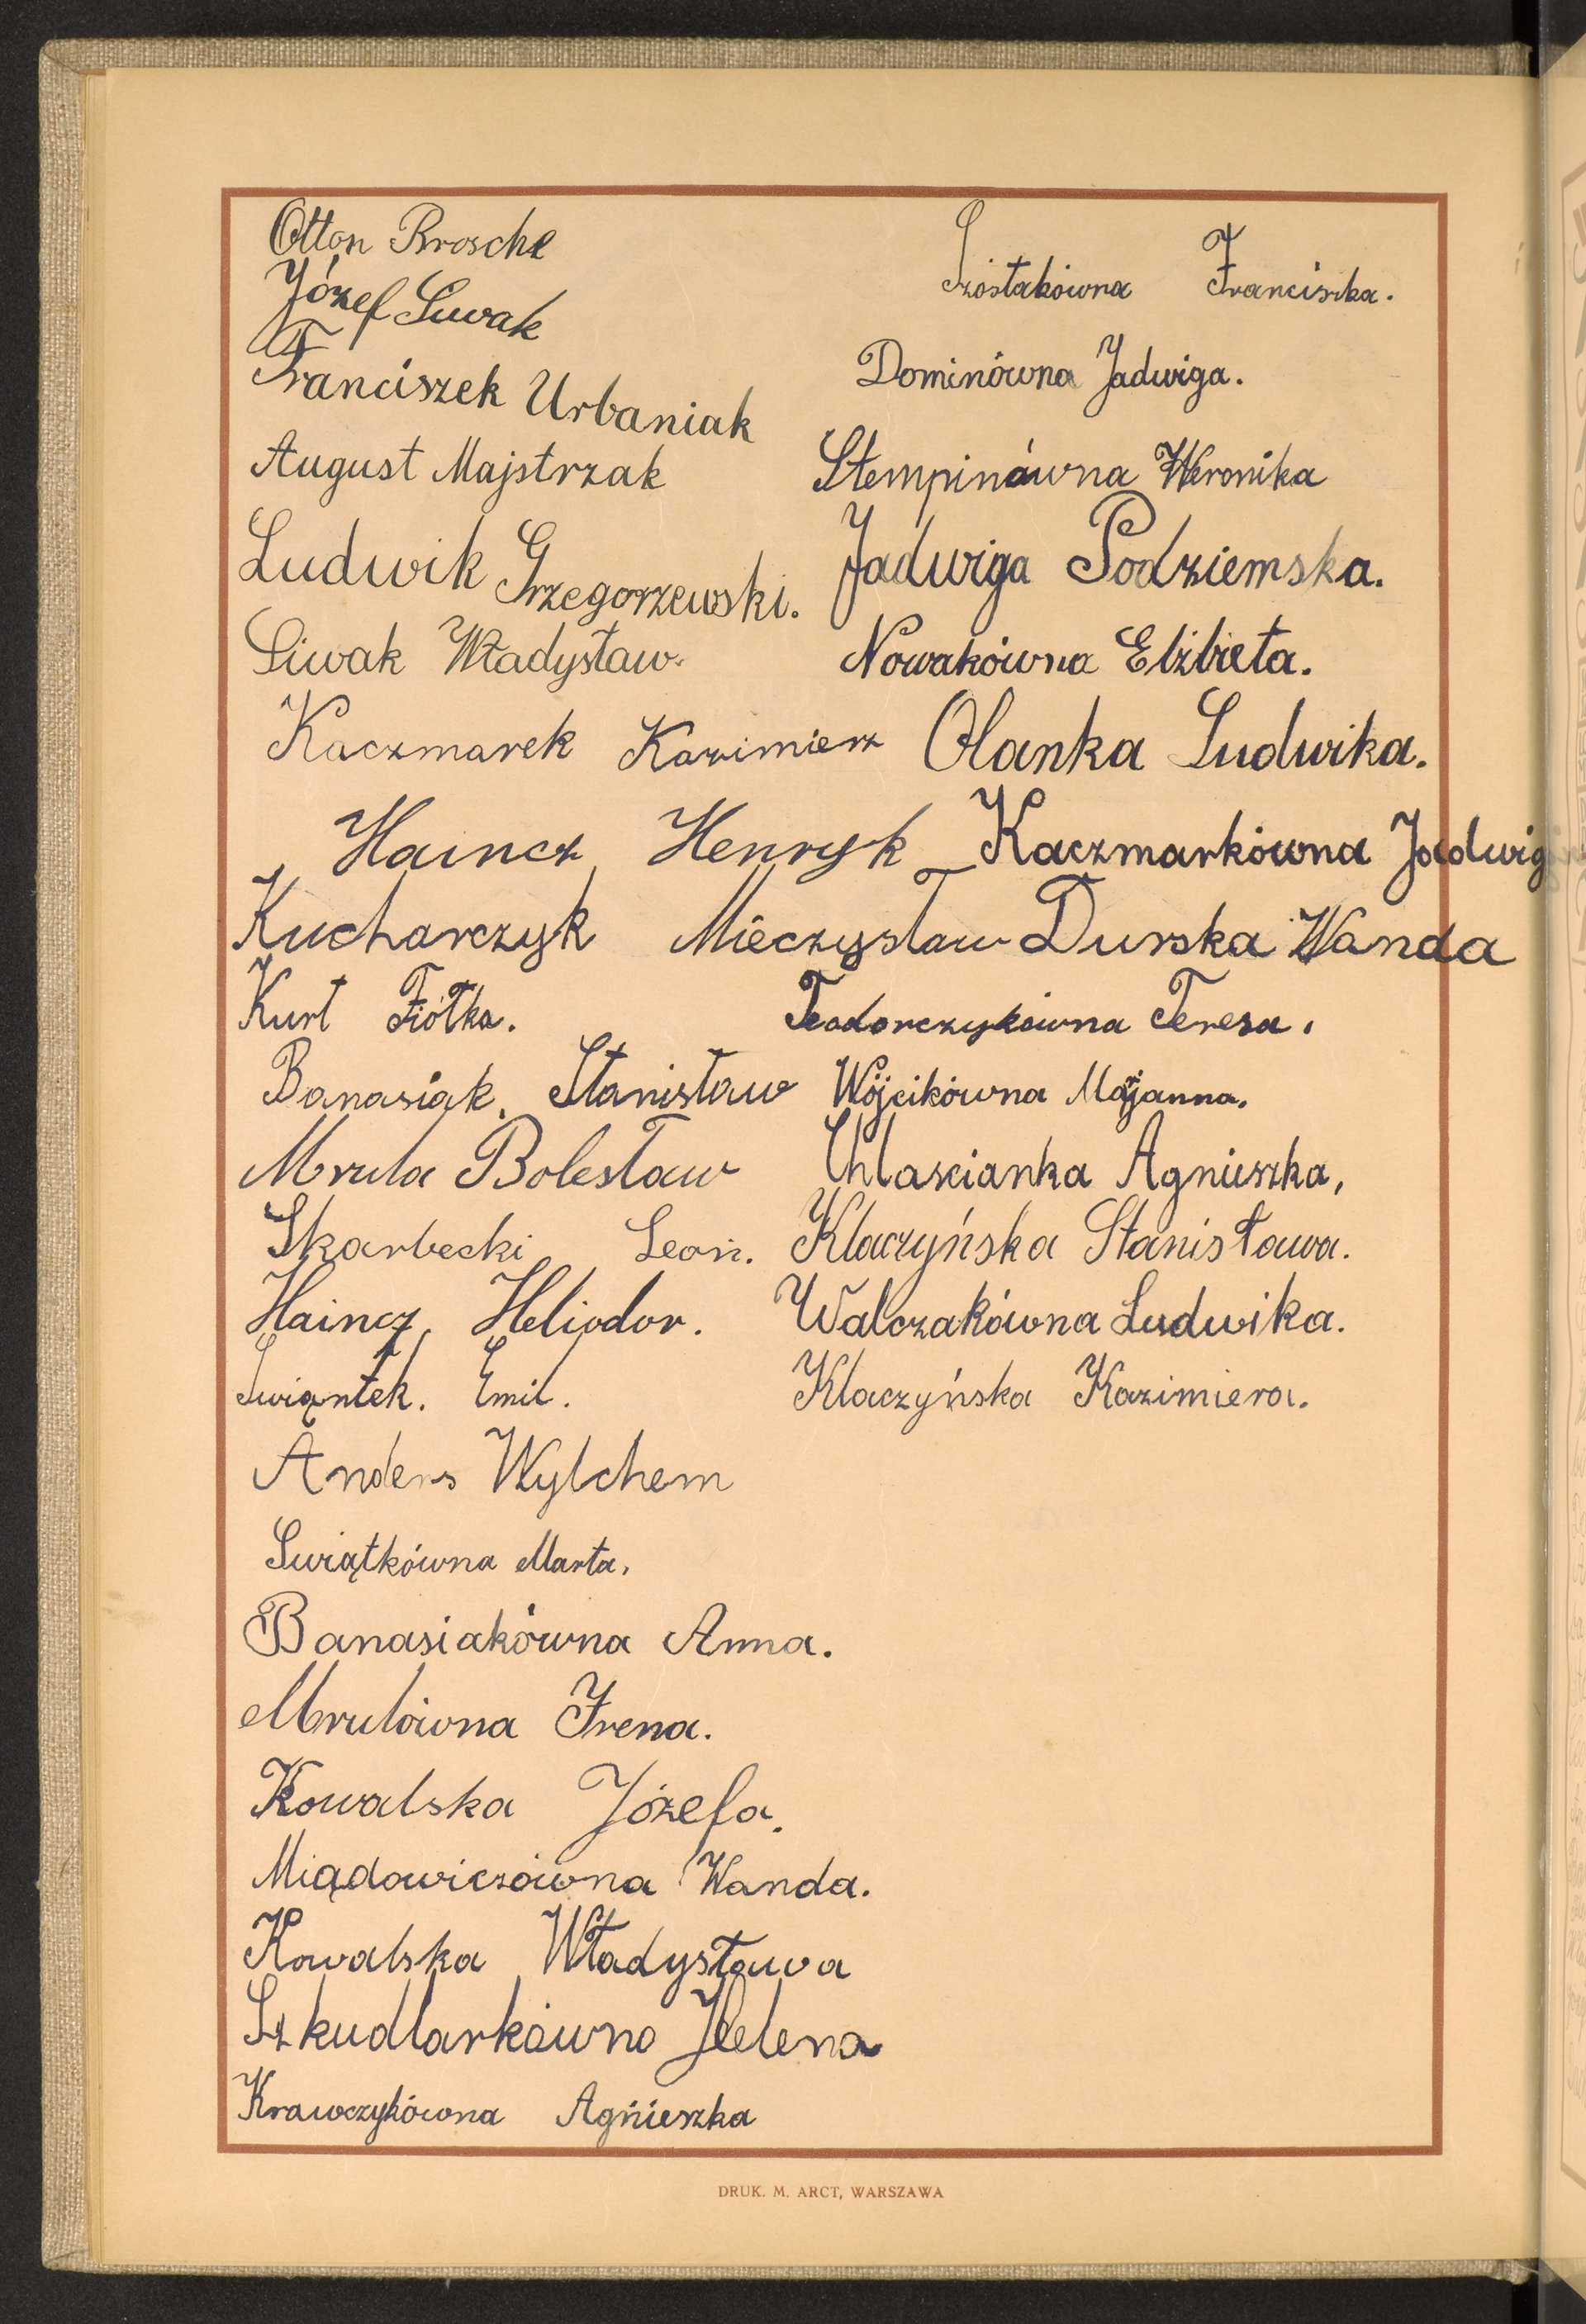 Otton Brosche
Józef Siwak
Franciszek Urbaniak
August Majstrzak
Ludwik Grzegorzewski.
Siwak Władysław.
Kaczmarek Kazimierz
Haincz Henryk
Kucharczyk Mieczysław
Kurt Fiołka.
Banasiak, Stanisław
Mrula Bolesław
Skarbecki Leon.
Haincz, Heliodor.
Świąntek. Emil.
Anders Wylchem
Swiątkówna Marta.
Banasiakówna Anna.
Mrulówna Irena.
Kowalska Józefa.
Miądowiczówna Wanda.
Kowalska Władysława
Szkudlarkówna Helena
Krawczykówna Agnieszka
Szóstakówna Franciszka.
Dominówna Jadwiga.
Stempinówna Weronika
Jadwiga Podziemska.
Nowakówna Elżbieta.
Olanka Ludwika.
Kaczmarkówna Jadwig
Durska Wanda
Teodorczykówna Teresa.
Wójcikówna Marjanna.
Chlaścianka Agnieszka,
Klaczyńska Stanisława.
Walczakówna Ludwika.
Klaczyńska Kazimiera.
DRUK. M. ARCT, WARSZAWA